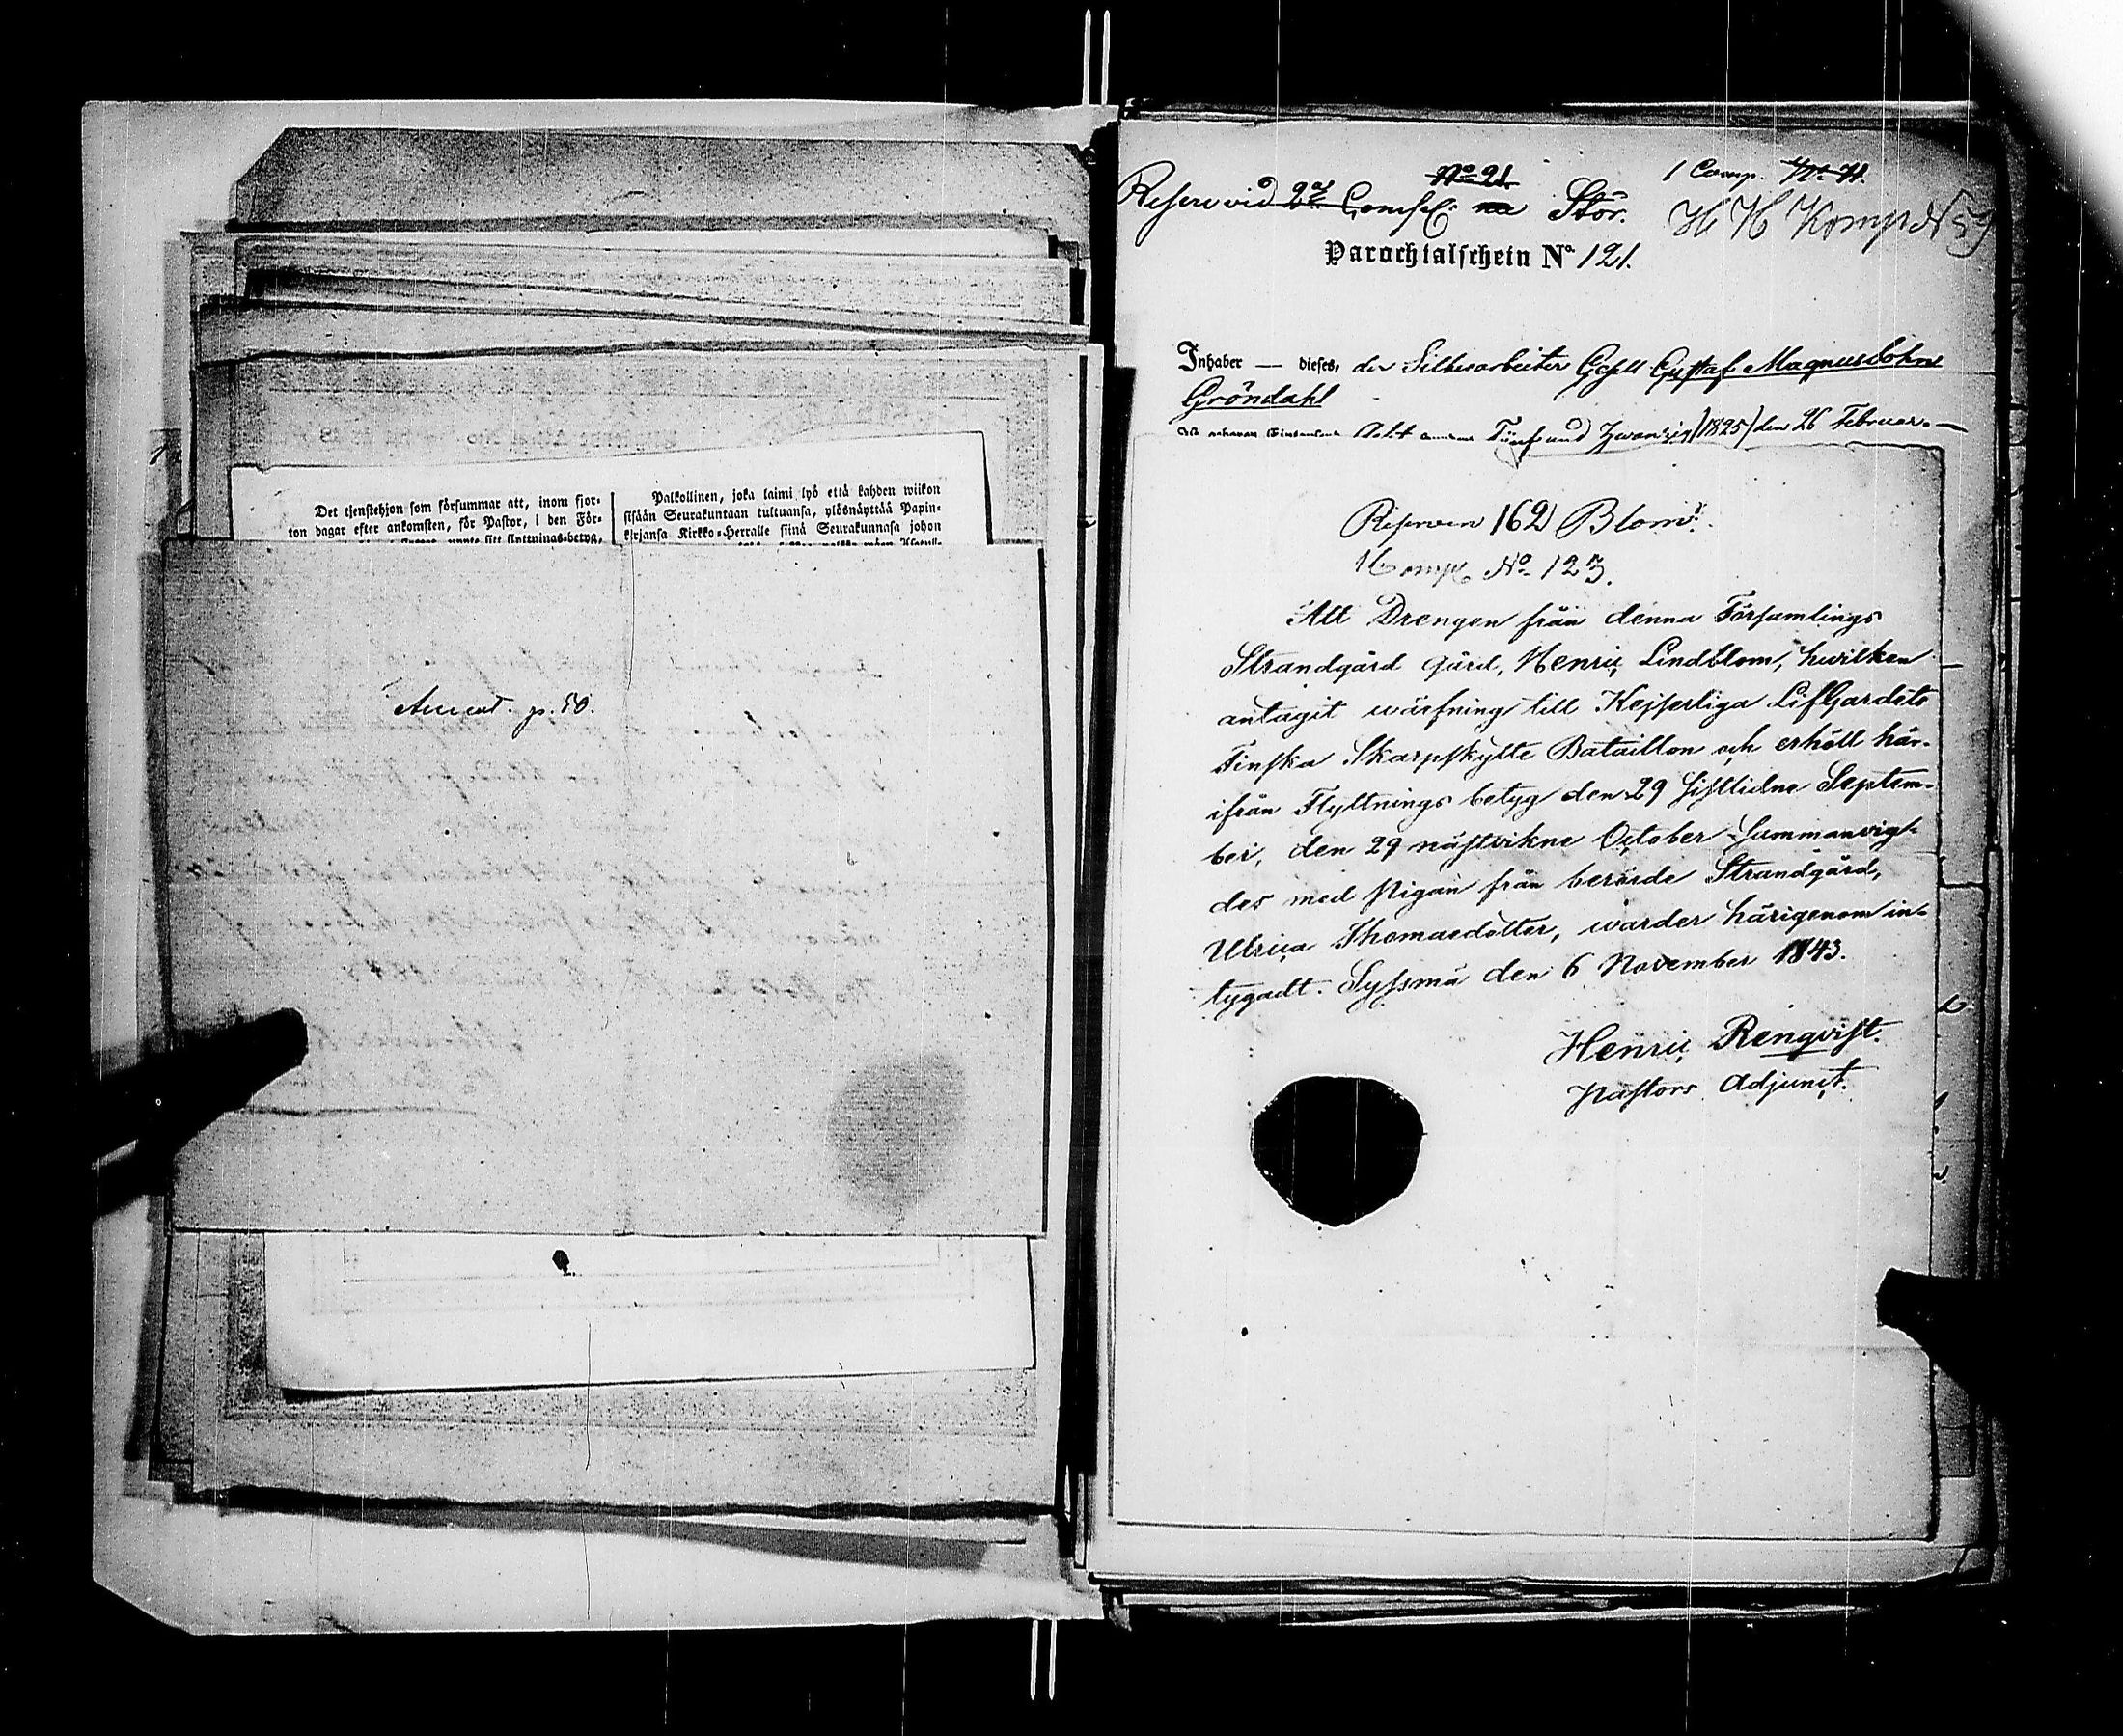 Det tjenstehjon som försummar att, inom fjor-
ton dagar efter ankomsten, för Pastor, i den För-
Palkollinen, joka laimi lyö että kahden wiikon
sisään Seurakuntaan tultuansa, ylösnäyttää Papin-
kirjansa Kirkko-Herralle siinä Seurakunnasa johon
p. 50.
No 21.
1 Comp. No 41.
Reserv vid 2de Comp. Stör.
Komp No 59
Parochialschein No 121.
Inhaber — dieses, der Silberarbeiter Gesell Gustaf Magnussohn
Gröndahl
Acht Fünf und Zwanzig (1825) den 26 Februar. —
Reserven 162 Blom.
1 Comp. No 123.
Att Drengen från denna Församlings
Strandgård gård, Henric Lindblom, hwilken
antagit wärfning till Kejserliga LifGardets
Finska Skarpskytte Bataillon och erhöll här-
ifrån Flyttnings betyg den 29 sistlidne Septem-
ber, den 29 nästvikne October sammanvig-
des med Pigan från berörde Strandgård,
Ulrica Thomaedotter, warder härigenom in-
tygadt. Syssmä den 6 November 1843.
Henric Renqvist.
Pastors Adjunct.